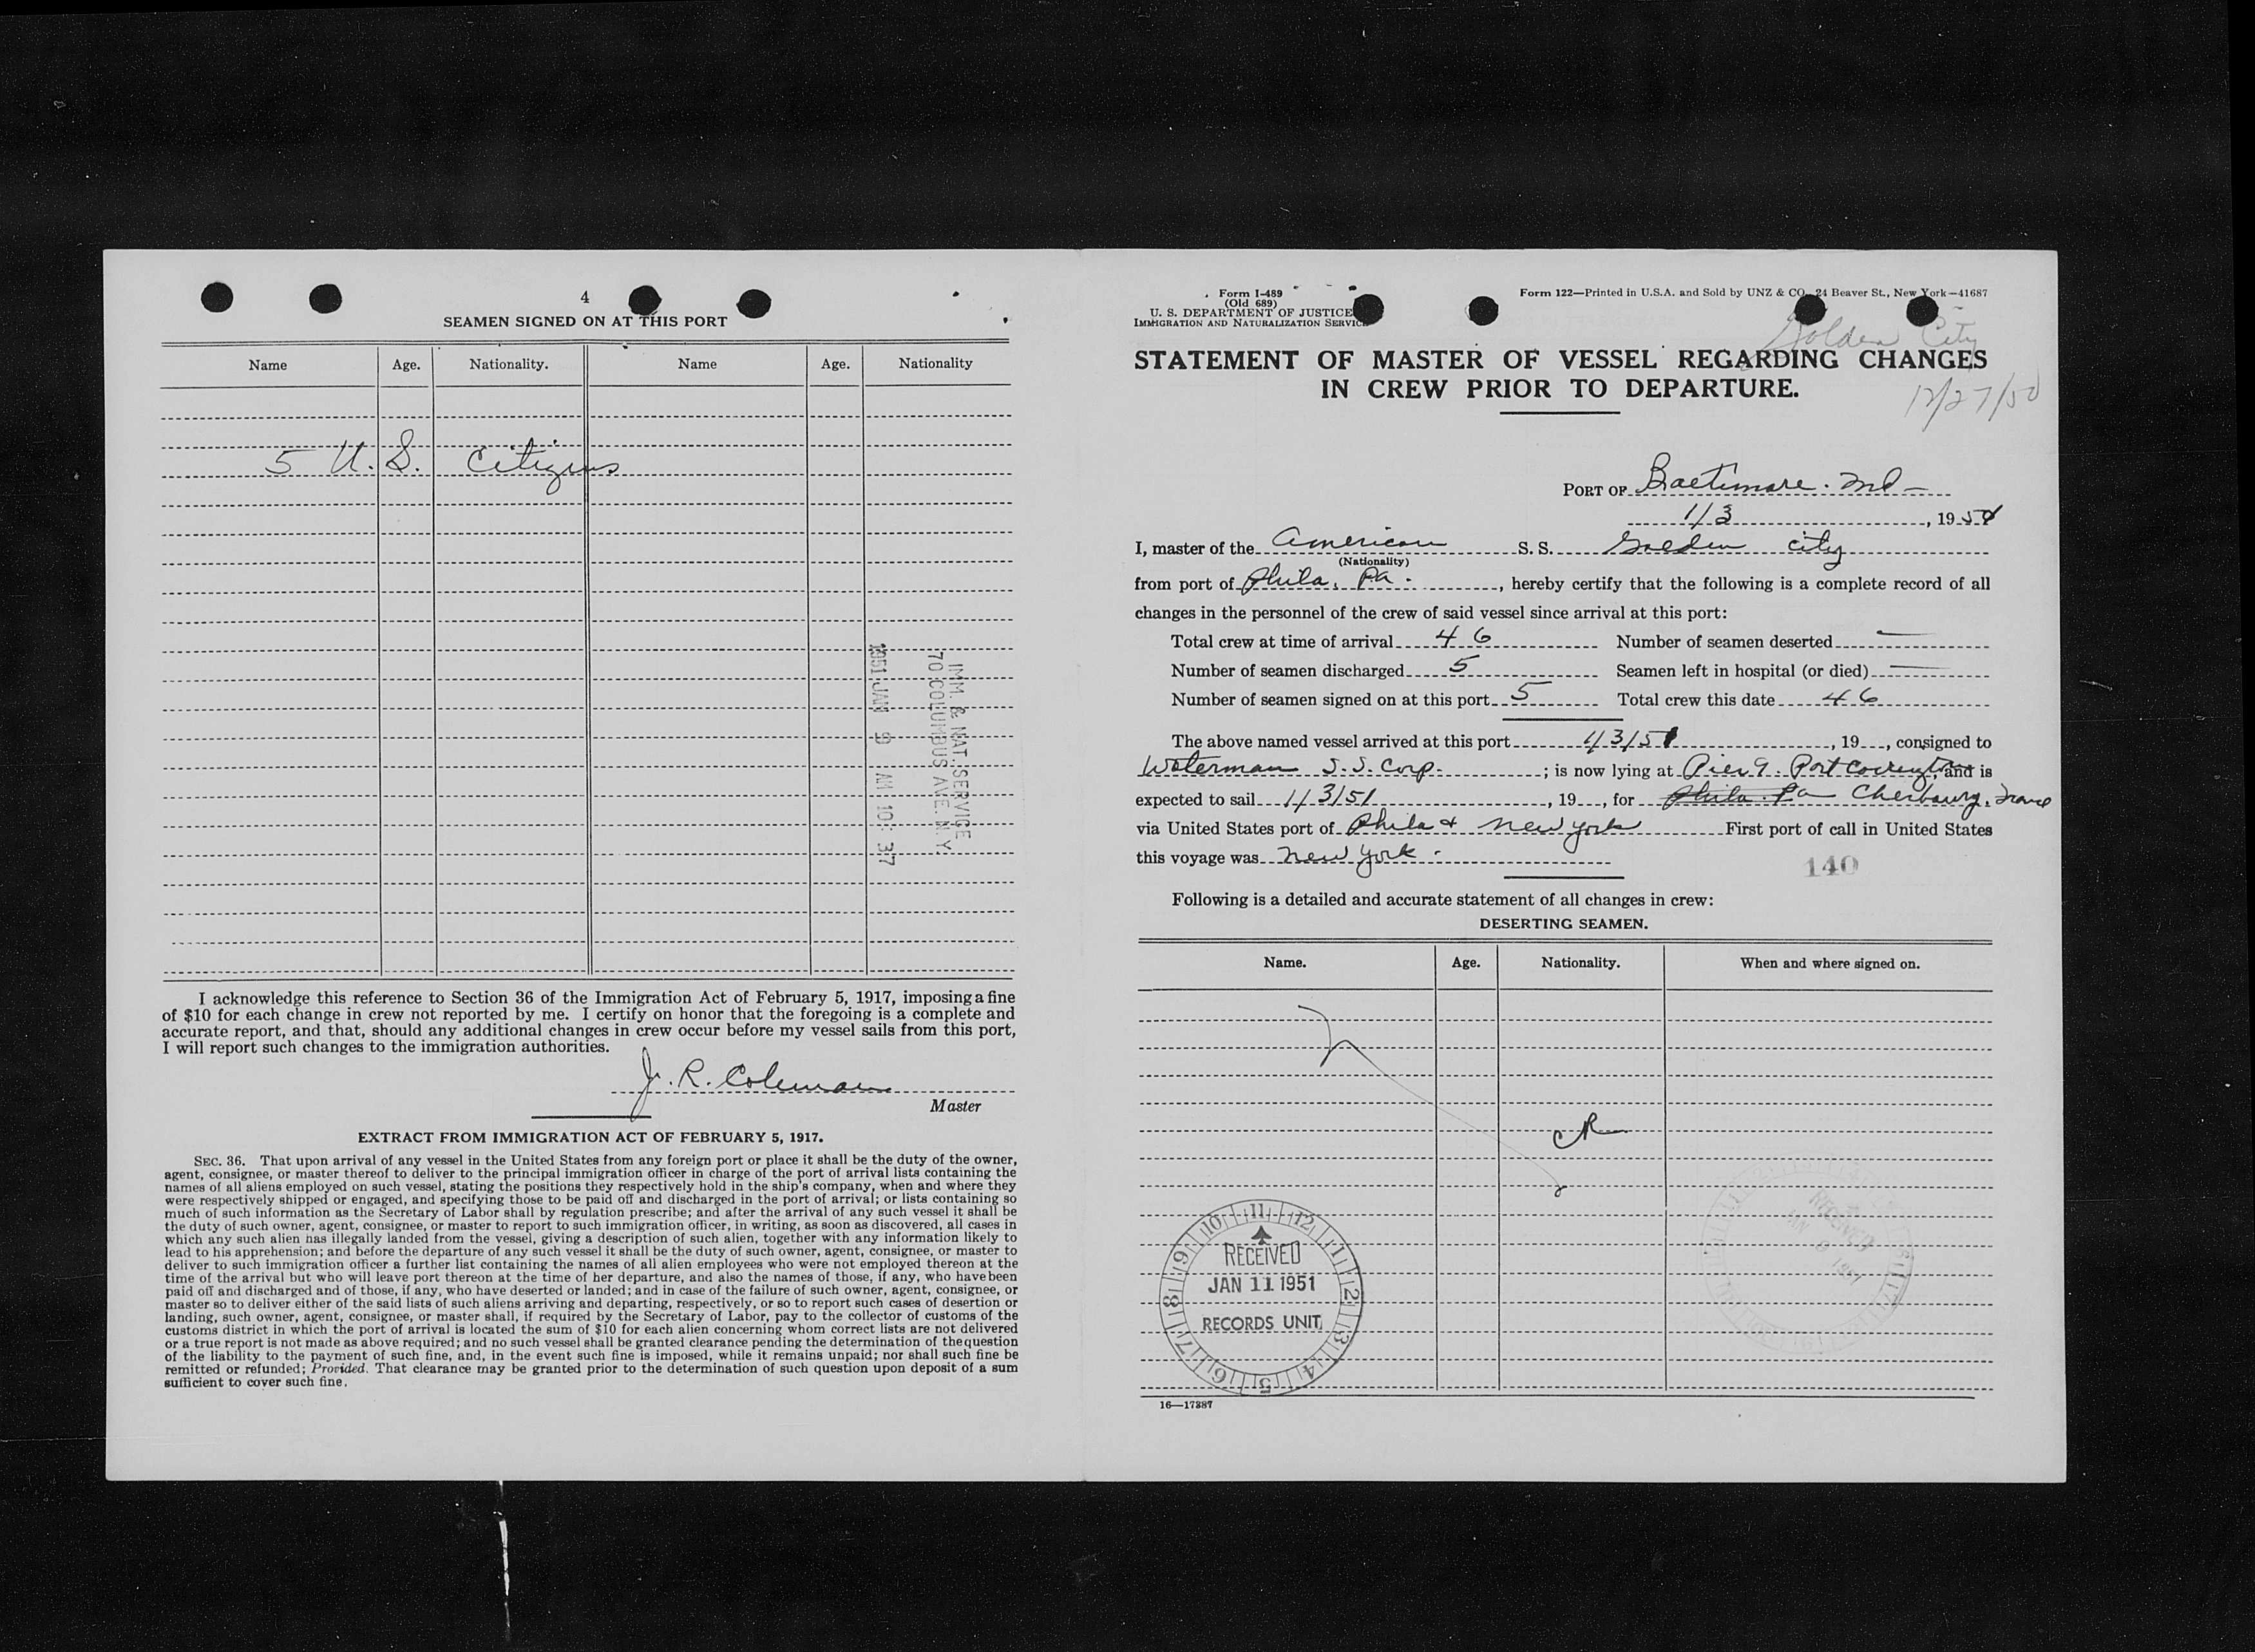 4
SEAMEN SIGNED ON AT THIS PORT
Name Age. Nationality. Name Age. Nationality
5 U. S. Citizens
IMM. & NAT. SERVICE
70 COLUMBUS AVE. N.Y.
1951 JAN 9 AM 10:37
I acknowledge this reference to Section 36 of the Immigration Act of February 5, 1917, imposing a fine
of $10 for each change in crew not reported by me. I certify on honor that the foregoing is a complete and
accurate report, and that, should any additional changes in crew occur before my vessel sails from this port,
I will report such changes to the immigration authorities.
J. R. Coleman
Master
EXTRACT FROM IMMIGRATION ACT OF FEBRUARY 5, 1917.
SEC. 36. That upon arrival of any vessel in the United States from any foreign port or place it shall be the duty of the owner,
agent, consignee, or master thereof to deliver to the principal immigration officer in charge of the port of arrival lists containing the
names of all aliens employed on such vessel, stating the positions they respectively hold in the ship's company, when and where they
were respectively shipped or engaged, and specifying those to be paid off and discharged in the port of arrival; or lists containing so
much of such information as the Secretary of Labor shall by regulation prescribe; and after the arrival of any such vessel it shall be
the duty of such owner, agent, consignee, or master to report to such immigration officer, in writing, as soon as discovered, all cases in
which any such alien has illegally landed from the vessel, giving a description of such alien, together with any information likely to
lead to his apprehension; and before the departure of any such vessel it shall be the duty of such owner, agent, consignee, or master to
deliver to such immigration officer a further list containing the names of all alien employees who were not employed thereon at the
time of the arrival but who will leave port thereon at the time of her departure, and also the names of those, if any, who have been
paid off and discharged and of those, if any, who have deserted or landed; and in case of the failure of such owner, agent, consignee, or
master so to deliver either of the said lists of such aliens arriving and departing, respectively, or so to report such cases of desertion or
landing, such owner, agent, consignee, or master shall, if required by the Secretary of Labor, pay to the collector of customs of the
customs district in which the port of arrival is located the sum of $10 for each alien concerning whom correct lists are not delivered
or a true report is not made as above required; and no such vessel shall be granted clearance pending the determination of the question
of the liability to the payment of such fine, and, in the event such fine is imposed, while it remains unpaid; nor shall such fine be
remitted or refunded; Provided. That clearance may be granted prior to the determination of such question upon deposit of a sum
sufficient to cover such fine.
Form I-489
(Old 689)
U. S. DEPARTMENT OF JUSTICE
IMMIGRATION AND NATURALIZATION SERVICE
Form 122—Printed in U.S.A. and Sold by UNZ & CO. 24 Beaver St., New York—41687
Golden City
STATEMENT OF MASTER OF VESSEL REGARDING CHANGES
IN CREW PRIOR TO DEPARTURE.
12/27/50
PORT OF Baltimore. Md-
1/3, 1951
I, master of the American S. S. Golden City
(Nationality)
from port of Phila. Pa., hereby certify that the following is a complete record of all
changes in the personnel of the crew of said vessel since arrival at this port:
Total crew at time of arrival 46 Number of seamen deserted —
Number of seamen discharged 5 Seamen left in hospital (or died) —
Number of seamen signed on at this port 5 Total crew this date 46
The above named vessel arrived at this port 1/3/51, 19, consigned to
Waterman S.S. Corp.; is now lying at Pier 9. Port Covington, and is
expected to sail 1/3/51, 19, for Phila. Pa Cherbourg, France
via United States port of Phila & New York First port of call in United States
this voyage was New York.
140
Following is a detailed and accurate statement of all changes in crew:
DESERTING SEAMEN.
Name. Age. Nationality. When and where signed on.
RECEIVED
JAN 11 1951
RECORDS UNIT
RECEIVED
JAN 9 1951
16—17387